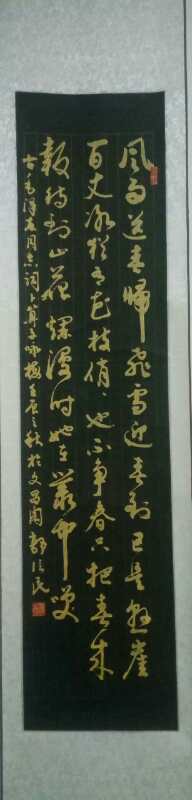 风雨送春归飞雪迎春到已是悬崖
百丈冰犹有花枝俏俏也不争春只把春来
报待到山花烂漫时她在丛中笑
古毛泽东同志词卜算子咏梅壬辰之秋於文昌阁